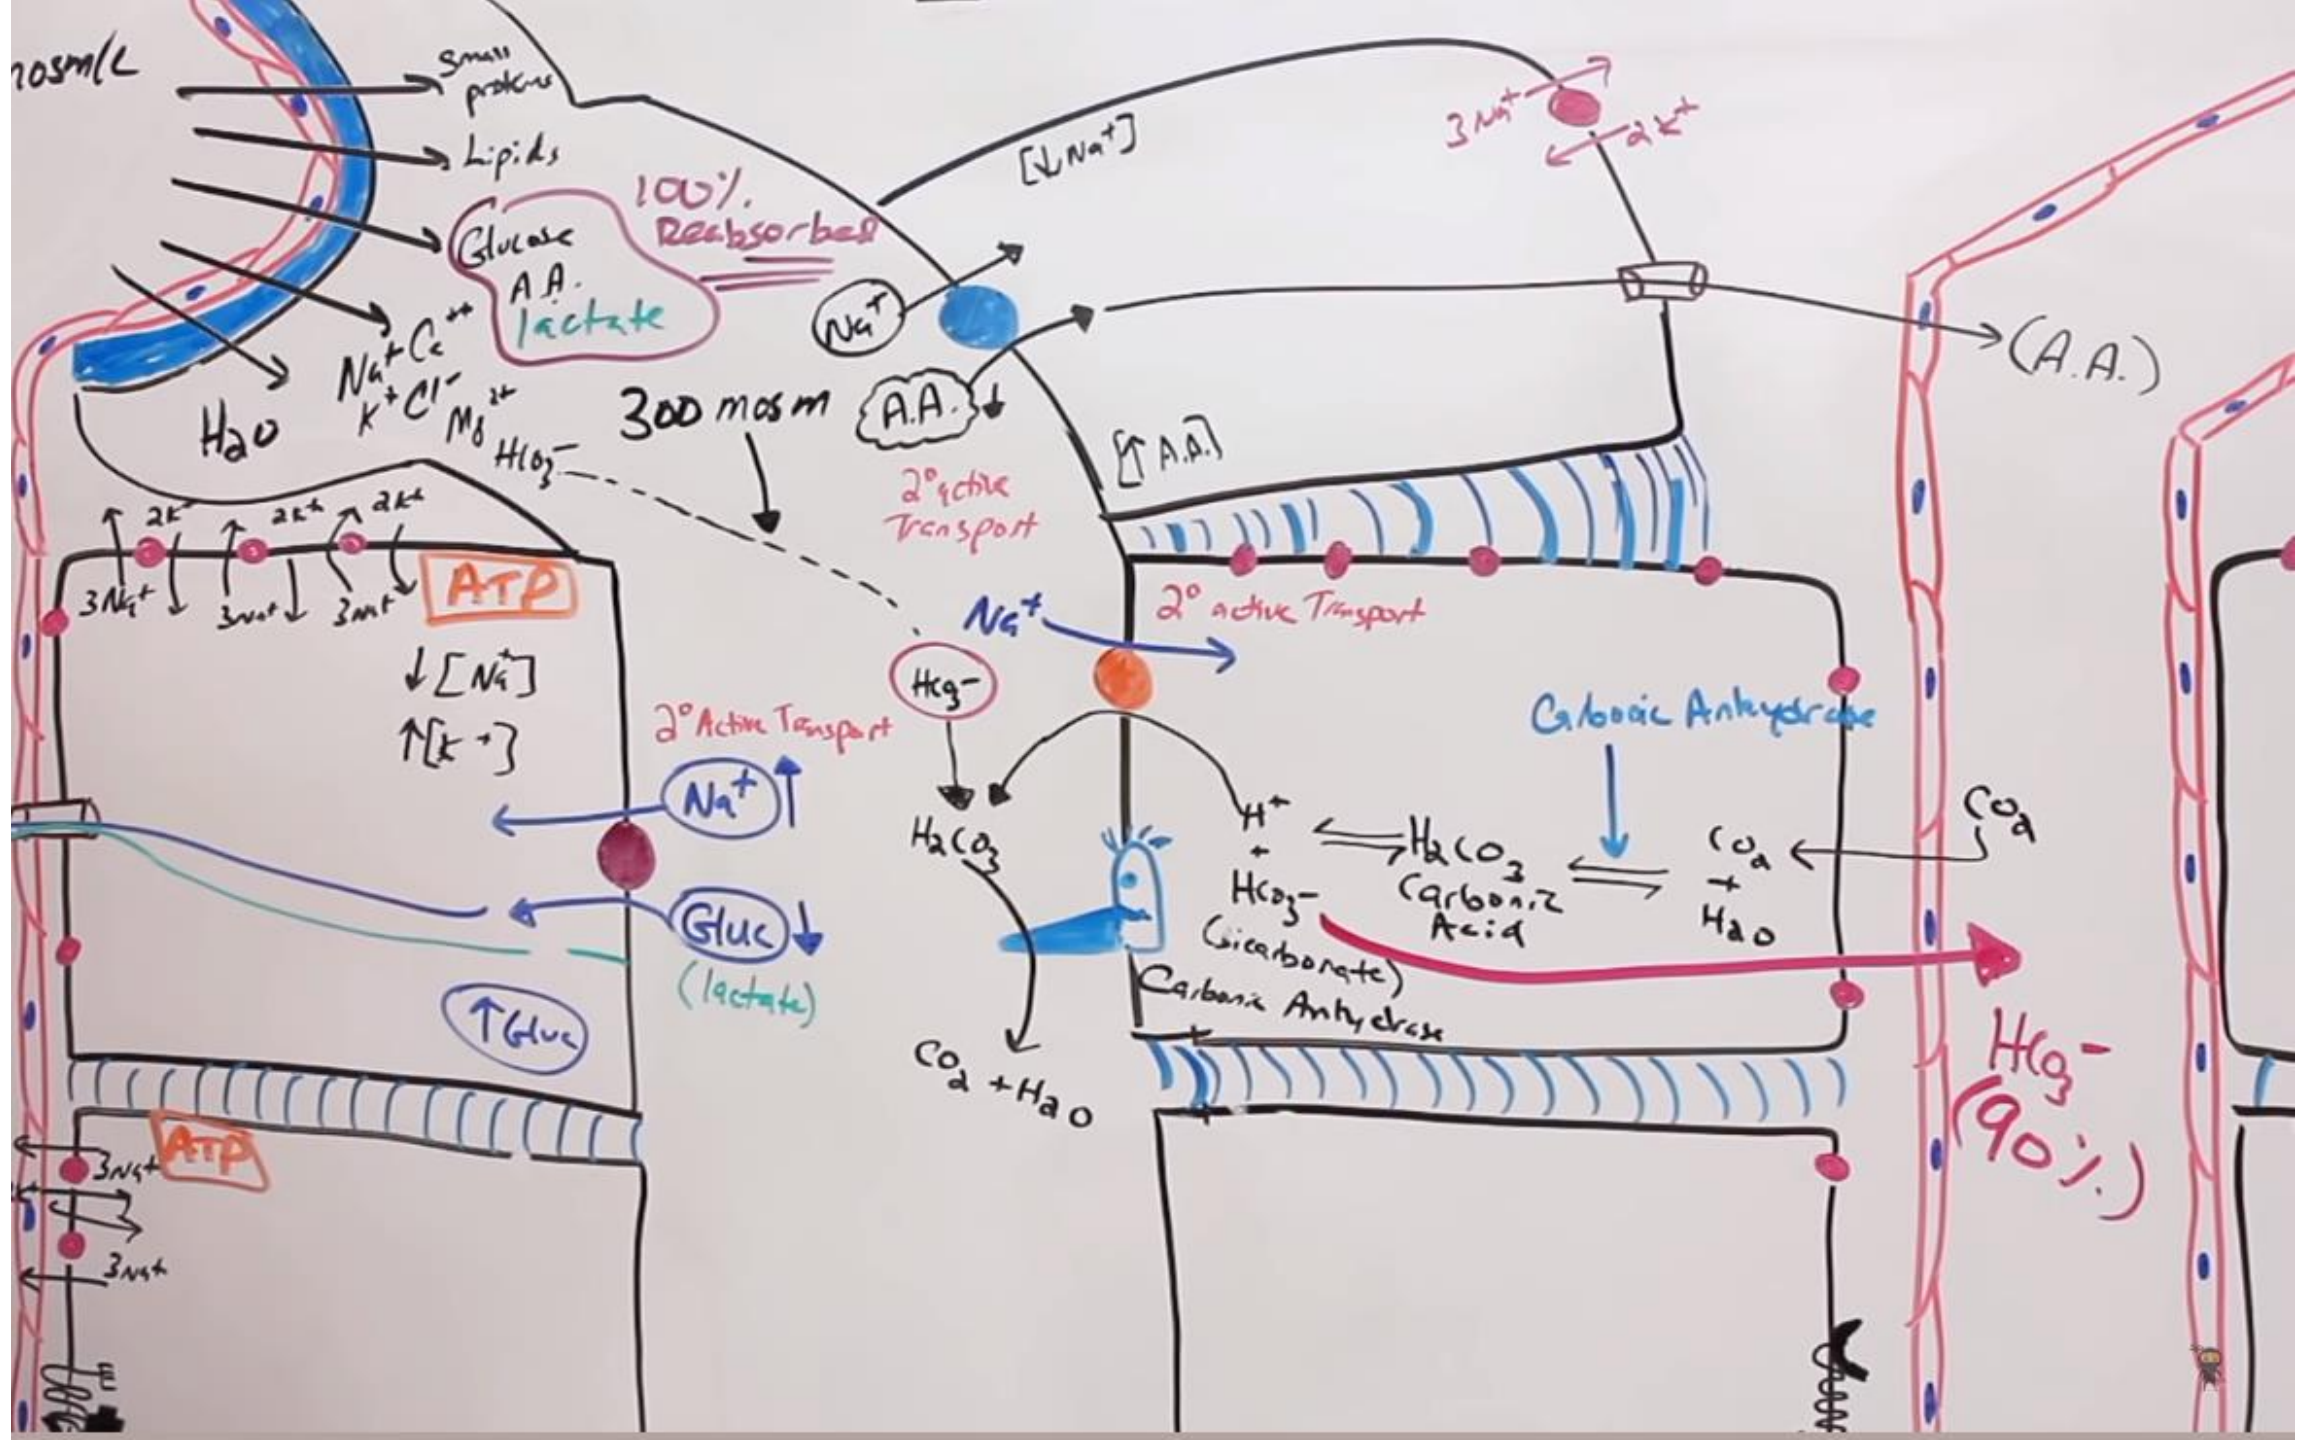 mosm/L
Small
proteins
Lipids
Glucose
A.A.
lactate
100%
Reabsorbed
Na+ Ca++
K+ Cl- Mg2+
HCO3-
H2O
300 mosm
Na+
A.A. ↓
2° active
Transport
[↓Na+]
3Na+
2K+
(A.A.)
[↑ A.A.]
2K+
2K+
2K+
3Na+
3Na+
3Na+
ATP
↓[Na+]
↑[K+]
2° Active Transport
Na+ ↑
Gluc ↓
(lactate)
↑Gluc
ATP
3Na+
3Na+
Na+
2° active Transport
HCO3-
H2CO3
CO2 + H2O
Carbonic Anhydrase
H+
+
HCO3-
(bicarbonate)
H2CO3
Carbonic
Acid
CO2
+
H2O
CO2
Carbonic
Anhydrase
HCO3-
(90%)